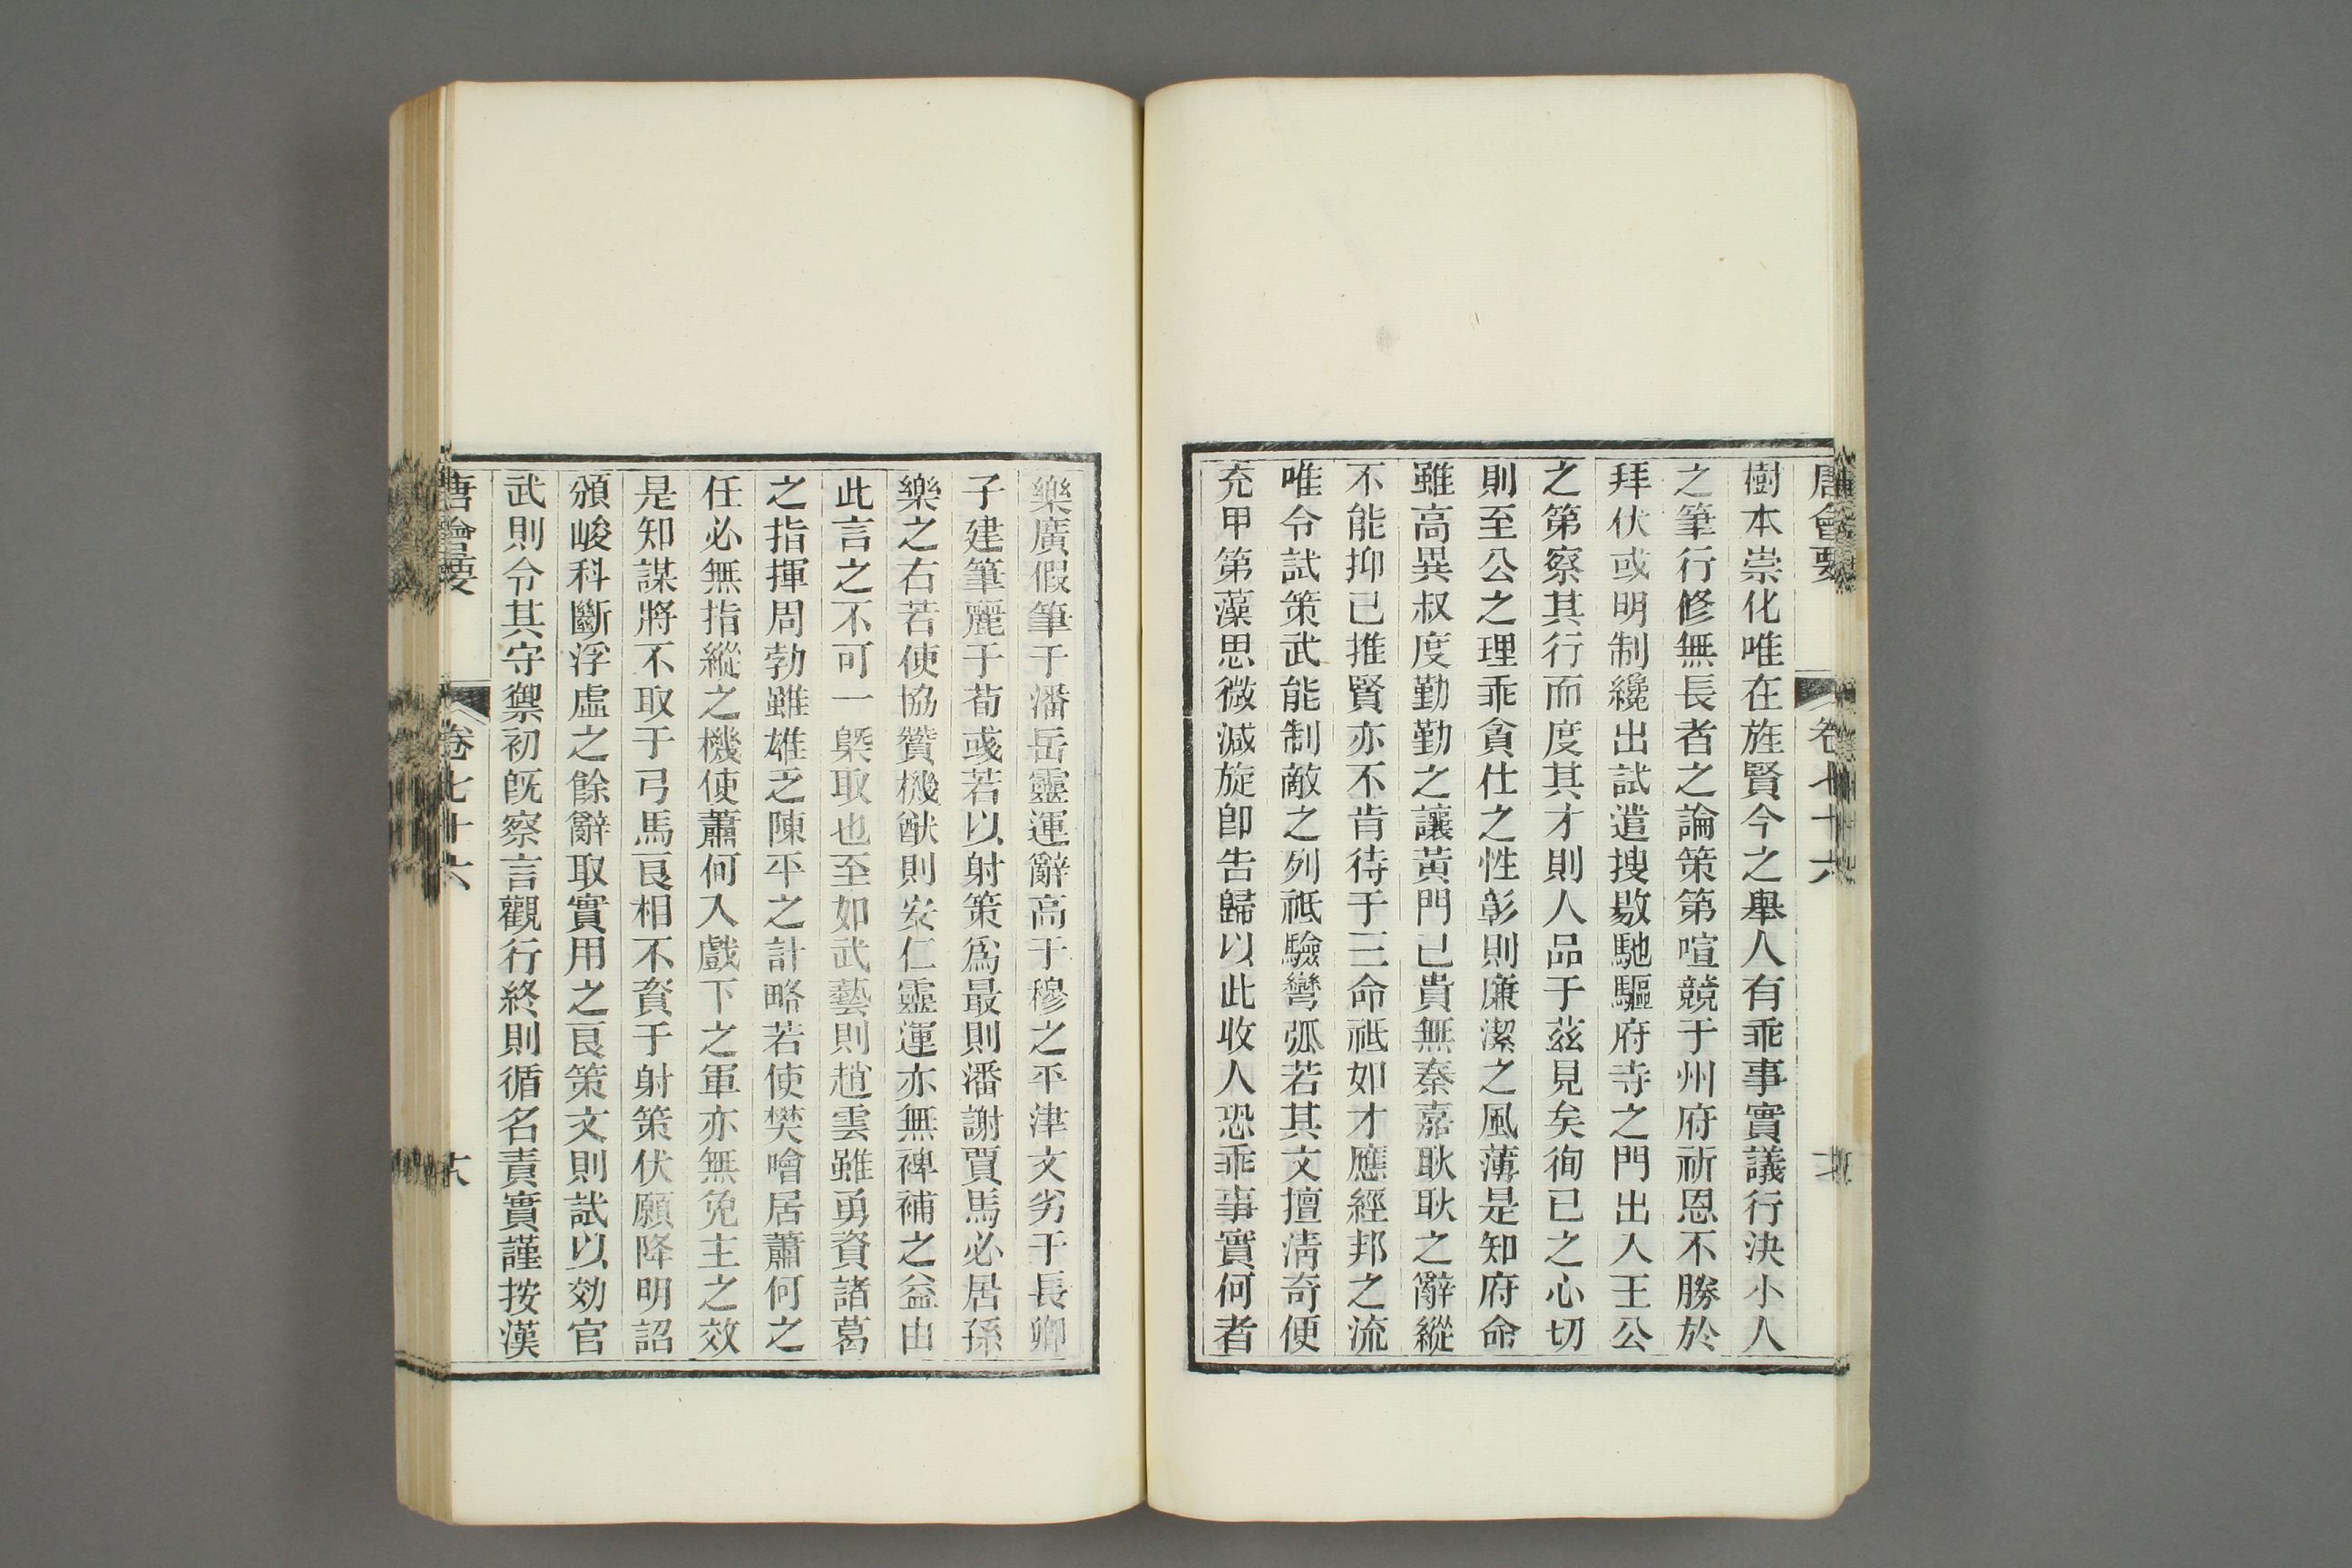 唐會要 卷七十六
樹本崇化唯在旌賢今之舉人有乖事實議行決小人
之筆行修無長者之論策第喧競于州府祈恩不勝於
拜伏或明制纔出試遣搜敭馳驅府寺之門出入王公
之第察其行而度其才則人品于茲見矣徇已之心切
則至公之理乖貪仕之性彰則廉潔之風薄是知府命
雖高異叔度勤勤之讓黃門已貴無秦嘉耿耿之辭縱
不能抑已推賢亦不肯待于三命祗如才應經邦之流
唯令試策武能制敵之列祗驗彎弧若其文擅清奇便
充甲第藻思微減旋卽告歸以此收人恐乖事實何者
樂廣假筆于潘岳靈運辭高于穆之平津文劣于長卿
子建筆麗于荀彧若以射策爲最則潘謝賈馬必居孫
樂之右若使協贊機猷則安仁靈運亦無裨補之益由
此言之不可一槩取也至如武藝則趙雲雖勇資諸葛
之指揮周勃雖雄乏陳平之計略若使樊噲居蕭何之
任必無指縱之機使蕭何入戲下之軍亦無免主之效
是知謀將不取于弓馬良相不資于射策伏願降明詔
頒峻科斷浮虛之餘辭取實用之良策文則試以効官
武則令其守禦初旣察言觀行終則循名責實謹按漢
唐會要 卷七十六